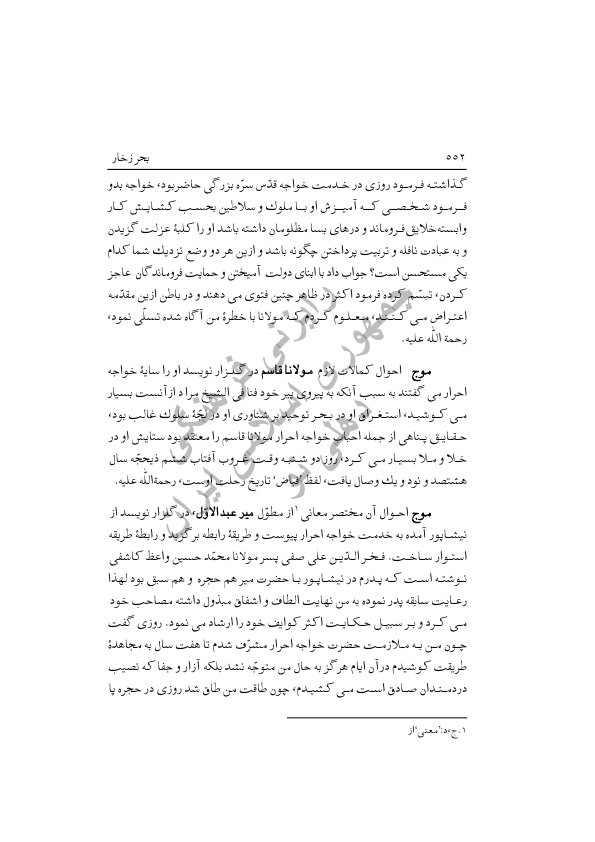 ۵۵۲
بحر زخار
گذاشته فرمود روزی در خدمت خواجه قدّس سرّه بزرگی حاضربود، خواجه بدو
فرمود شخصی که آمیزش او با ملوك و سلاطین بحسب کشایش کار
وابسته خلایق فروماند و درهای بسا مظلومان داشته باشد او را کلبهٔ عزلت گزیدن
و به عبادت نافله و تربیت پرداختن چگونه باشد و ازین هر دو وضع نزدیك شما کدام
یکی مستحسن است؟ جواب داد با ابنای دولت آمیختن و حمایت فروماندگان عاجز
کردن، تبسّم کرده فرمود اکثر در ظاهر چنین فتوی می دهند و در باطن ازین مقدّمه
اعتراض می کنند، معلوم کردم که مولانا با خطرهٔ من آگاه شده تسلّی نمود،
رحمة الله علیه.
موج احوال کمالات لازم مولانا قاسم در گلزار نویسد او را سایهٔ خواجه
احرار می گفتند به سبب آنکه به پیروی پیر خود فنا فی الشیخ مراد از آنست بسیار
می کوشید، استغراق او در بحر توحید بر شناوری او در لجّهٔ سلوك غالب بود،
حقایق پناهی از جمله احباب خواجه احرار مولانا قاسم را معتقد بود ستایش او در
خلا و ملا بسیار می کرد، روز دو شنبه وقت غروب آفتاب ششم ذیحجّه سال
هشتصد و نود و یك وصال یافت، لفظ ‘فیاض’ تاریخ رحلت اوست، رحمةالله علیه.
موج احوال آن مختصر معانی۱ از مطوّل میر عبدالاوّل، در گلزار نویسد از
نیشاپور آمده به خدمت خواجه احرار پیوست و طریقهٔ رابطه برگزید و رابطهٔ طریقه
استوار ساخت. فخر الدّین علی صفی پسر مولانا محمّد حسین واعظ کاشفی
نوشته است که پدرم در نیشاپور با حضرت میر هم حجره و هم سبق بود لهذا
رعایت سابقه پدر نموده به من نهایت الطاف و اشفاق مبذول داشته مصاحب خود
می کرد و بر سبیل حکایت اکثر کوایف خود را ارشاد می نمود. روزی گفت
چون من به ملازمت حضرت خواجه احرار مشرّف شدم تا هفت سال به مجاهدهٔ
طریقت کوشیدم درآن ایام هرگز به حال من متوجّه نشد بلکه آزار و جفا که نصیب
دردمندان صادق است می کشیدم، چون طاقت من طاق شد روزی در حجره پا
۱. ج،د:‘معنی’از
رایزنی فرهنگی
جمهوری اسلامی ایران
دهلی نو